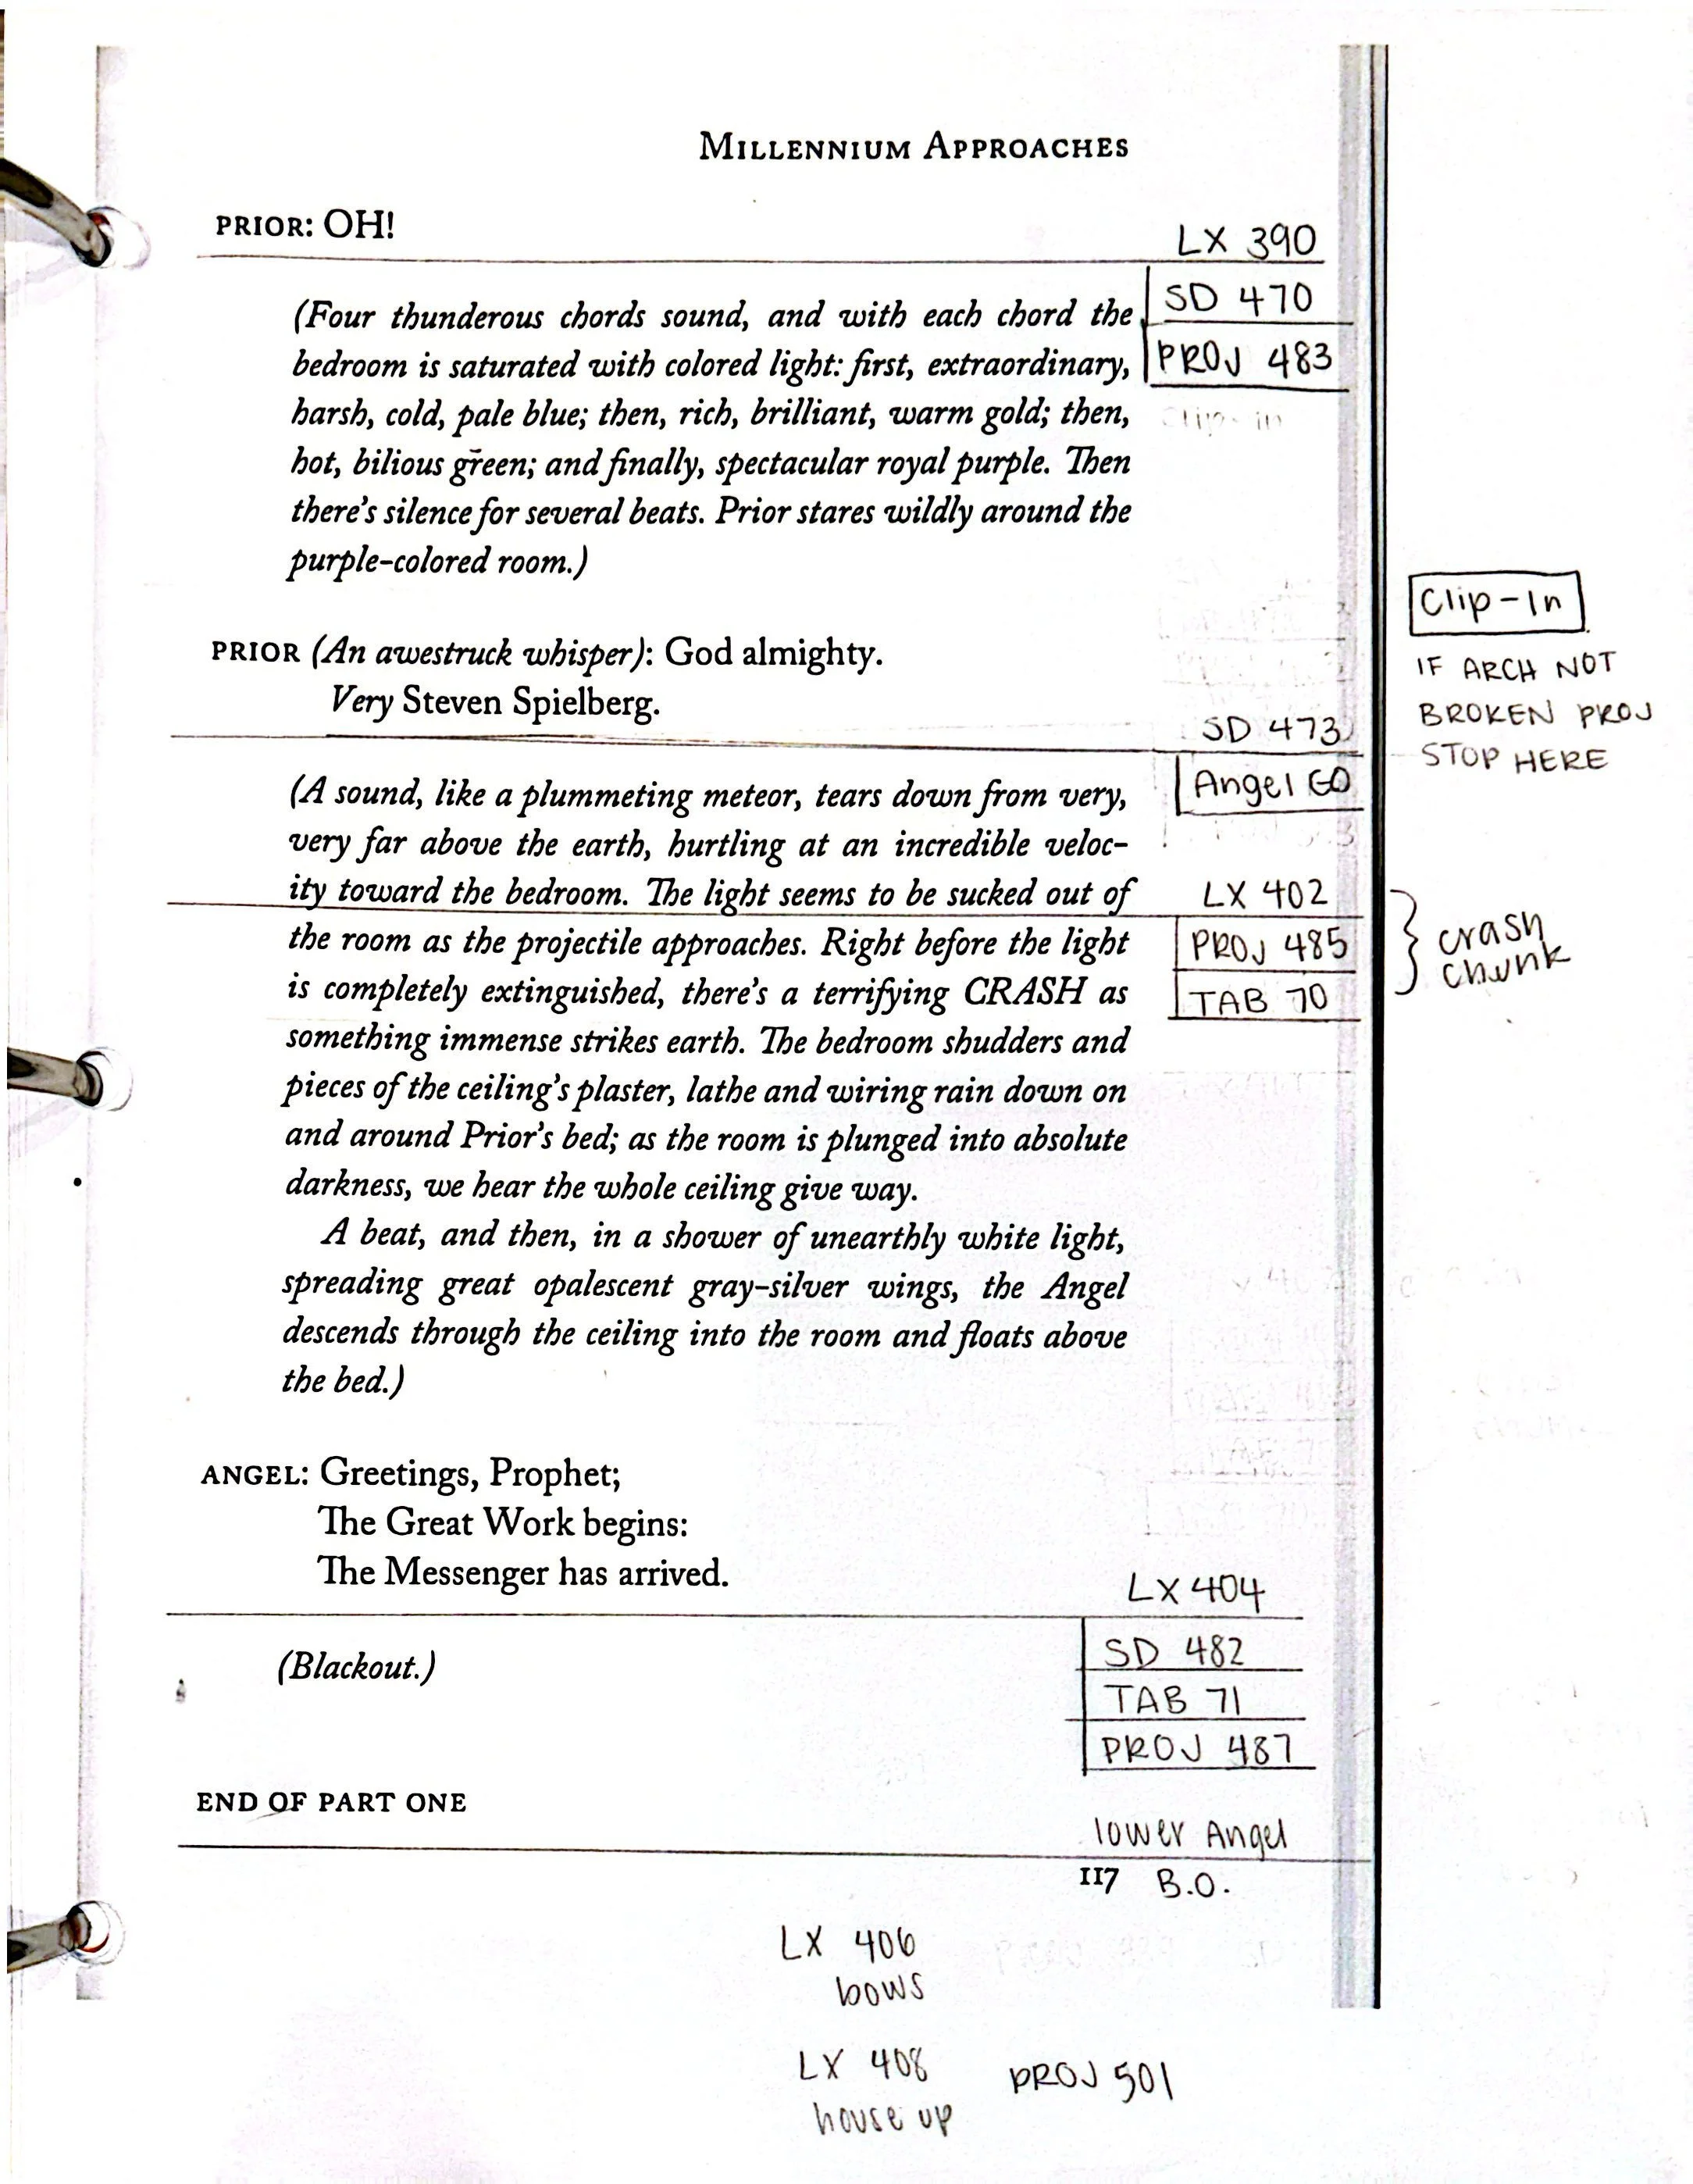 MILLENNIUM APPROACHES
PRIOR: OH!
LX 390
SD 470
PROJ 483
(Four thunderous chords sound, and with each chord the
bedroom is saturated with colored light: first, extraordinary,
harsh, cold, pale blue; then, rich, brilliant, warm gold; then,
hot, bilious green; and finally, spectacular royal purple. Then
there's silence for several beats. Prior stares wildly around the
purple-colored room.)
Clip-In
IF ARCH NOT
BROKEN PROJ
STOP HERE
PRIOR (An awestruck whisper): God almighty.
Very Steven Spielberg.
SD 473
Angel GO
(A sound, like a plummeting meteor, tears down from very,
very far above the earth, hurtling at an incredible veloc-
ity toward the bedroom. The light seems to be sucked out of
LX 402
PROJ 485
TAB 70
crash
chunk
the room as the projectile approaches. Right before the light
is completely extinguished, there's a terrifying CRASH as
something immense strikes earth. The bedroom shudders and
pieces of the ceiling's plaster, lathe and wiring rain down on
and around Prior's bed; as the room is plunged into absolute
darkness, we hear the whole ceiling give way.
A beat, and then, in a shower of unearthly white light,
spreading great opalescent gray-silver wings, the Angel
descends through the ceiling into the room and floats above
the bed.)
ANGEL: Greetings, Prophet;
The Great Work begins:
The Messenger has arrived.
LX 404
SD 482
TAB 71
PROJ 487
(Blackout.)
END OF PART ONE
lower Angel
117 B.O.
LX 406
bows
LX 408
house up
PROJ 501